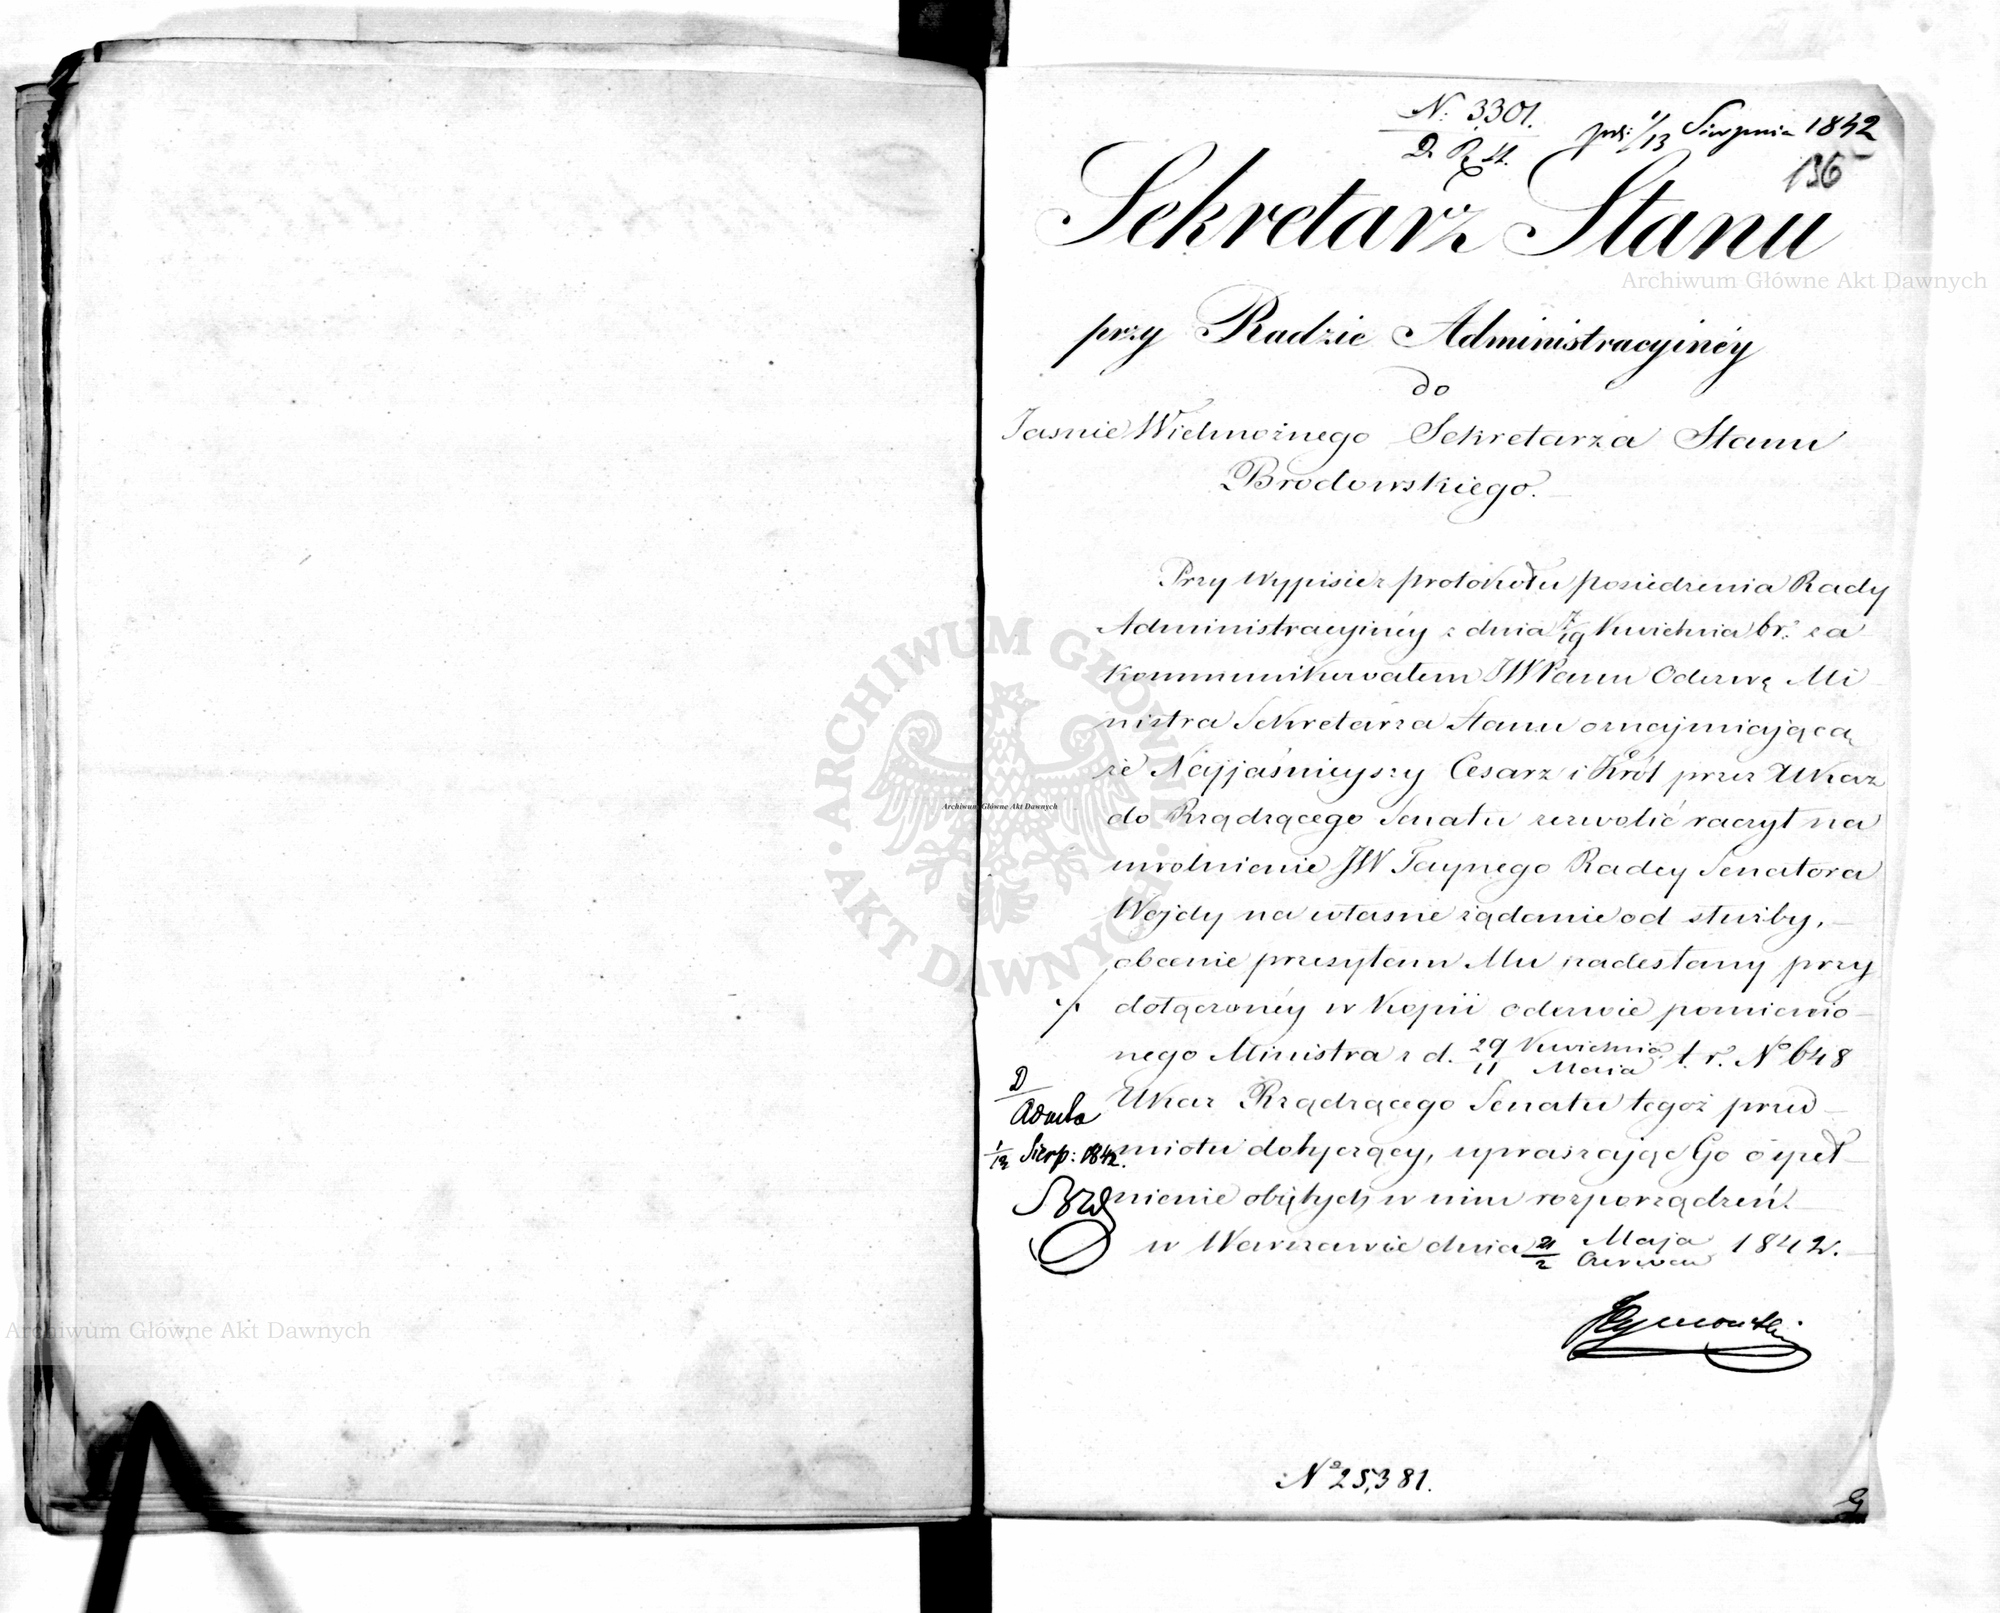 N: 3301.
D. R. St.
pod: 1/13 Sierpnia 1842
136
Sekretarz Stanu
przy Radzie Administracyinéy
do
Jasnie Wielmożnego Sekretarza Stanu
Brodowskiego.
Przy wypisie z protokołu posiedzenia Rady
Administracyinéy z dnia 7/19 Kwietnia b.r. za
kommunikowałem JWPanu Odezwę Mi
nistra Sekretarza Stanu oznajmiającą
że Najjaśnieyszy Cesarz i Król przez Ukaz
do Rządzącego Senatu zezwolić raczył na
uwolnienie JW Taynego Radcy Senatora
Wojdy na własne żądanie od służby,
obecnie przesyłam Mu nadesłany przy
dołączonéy w kopii odezwie pomienio
nego Ministra z d. 29 Kwietnia / 11 Maia t. r. No 648
Ukaz Rządzącego Senatu tegoż przed
miotu dotyczący, upraszając Go o speł
nienie objętych w nim rozporządzeń.
w Warszawie dnia 21 Maja / 2 Czerwca 1842.
D
Ad acta
1/13 Sierp: 1842.
No 25,381.
Archiwum Główne Akt Dawnych
Archiwum Główne Akt Dawnych
Archiwum Główne Akt Dawnych
ARCHIWUM GŁÓWNE AKT DAWNYCH